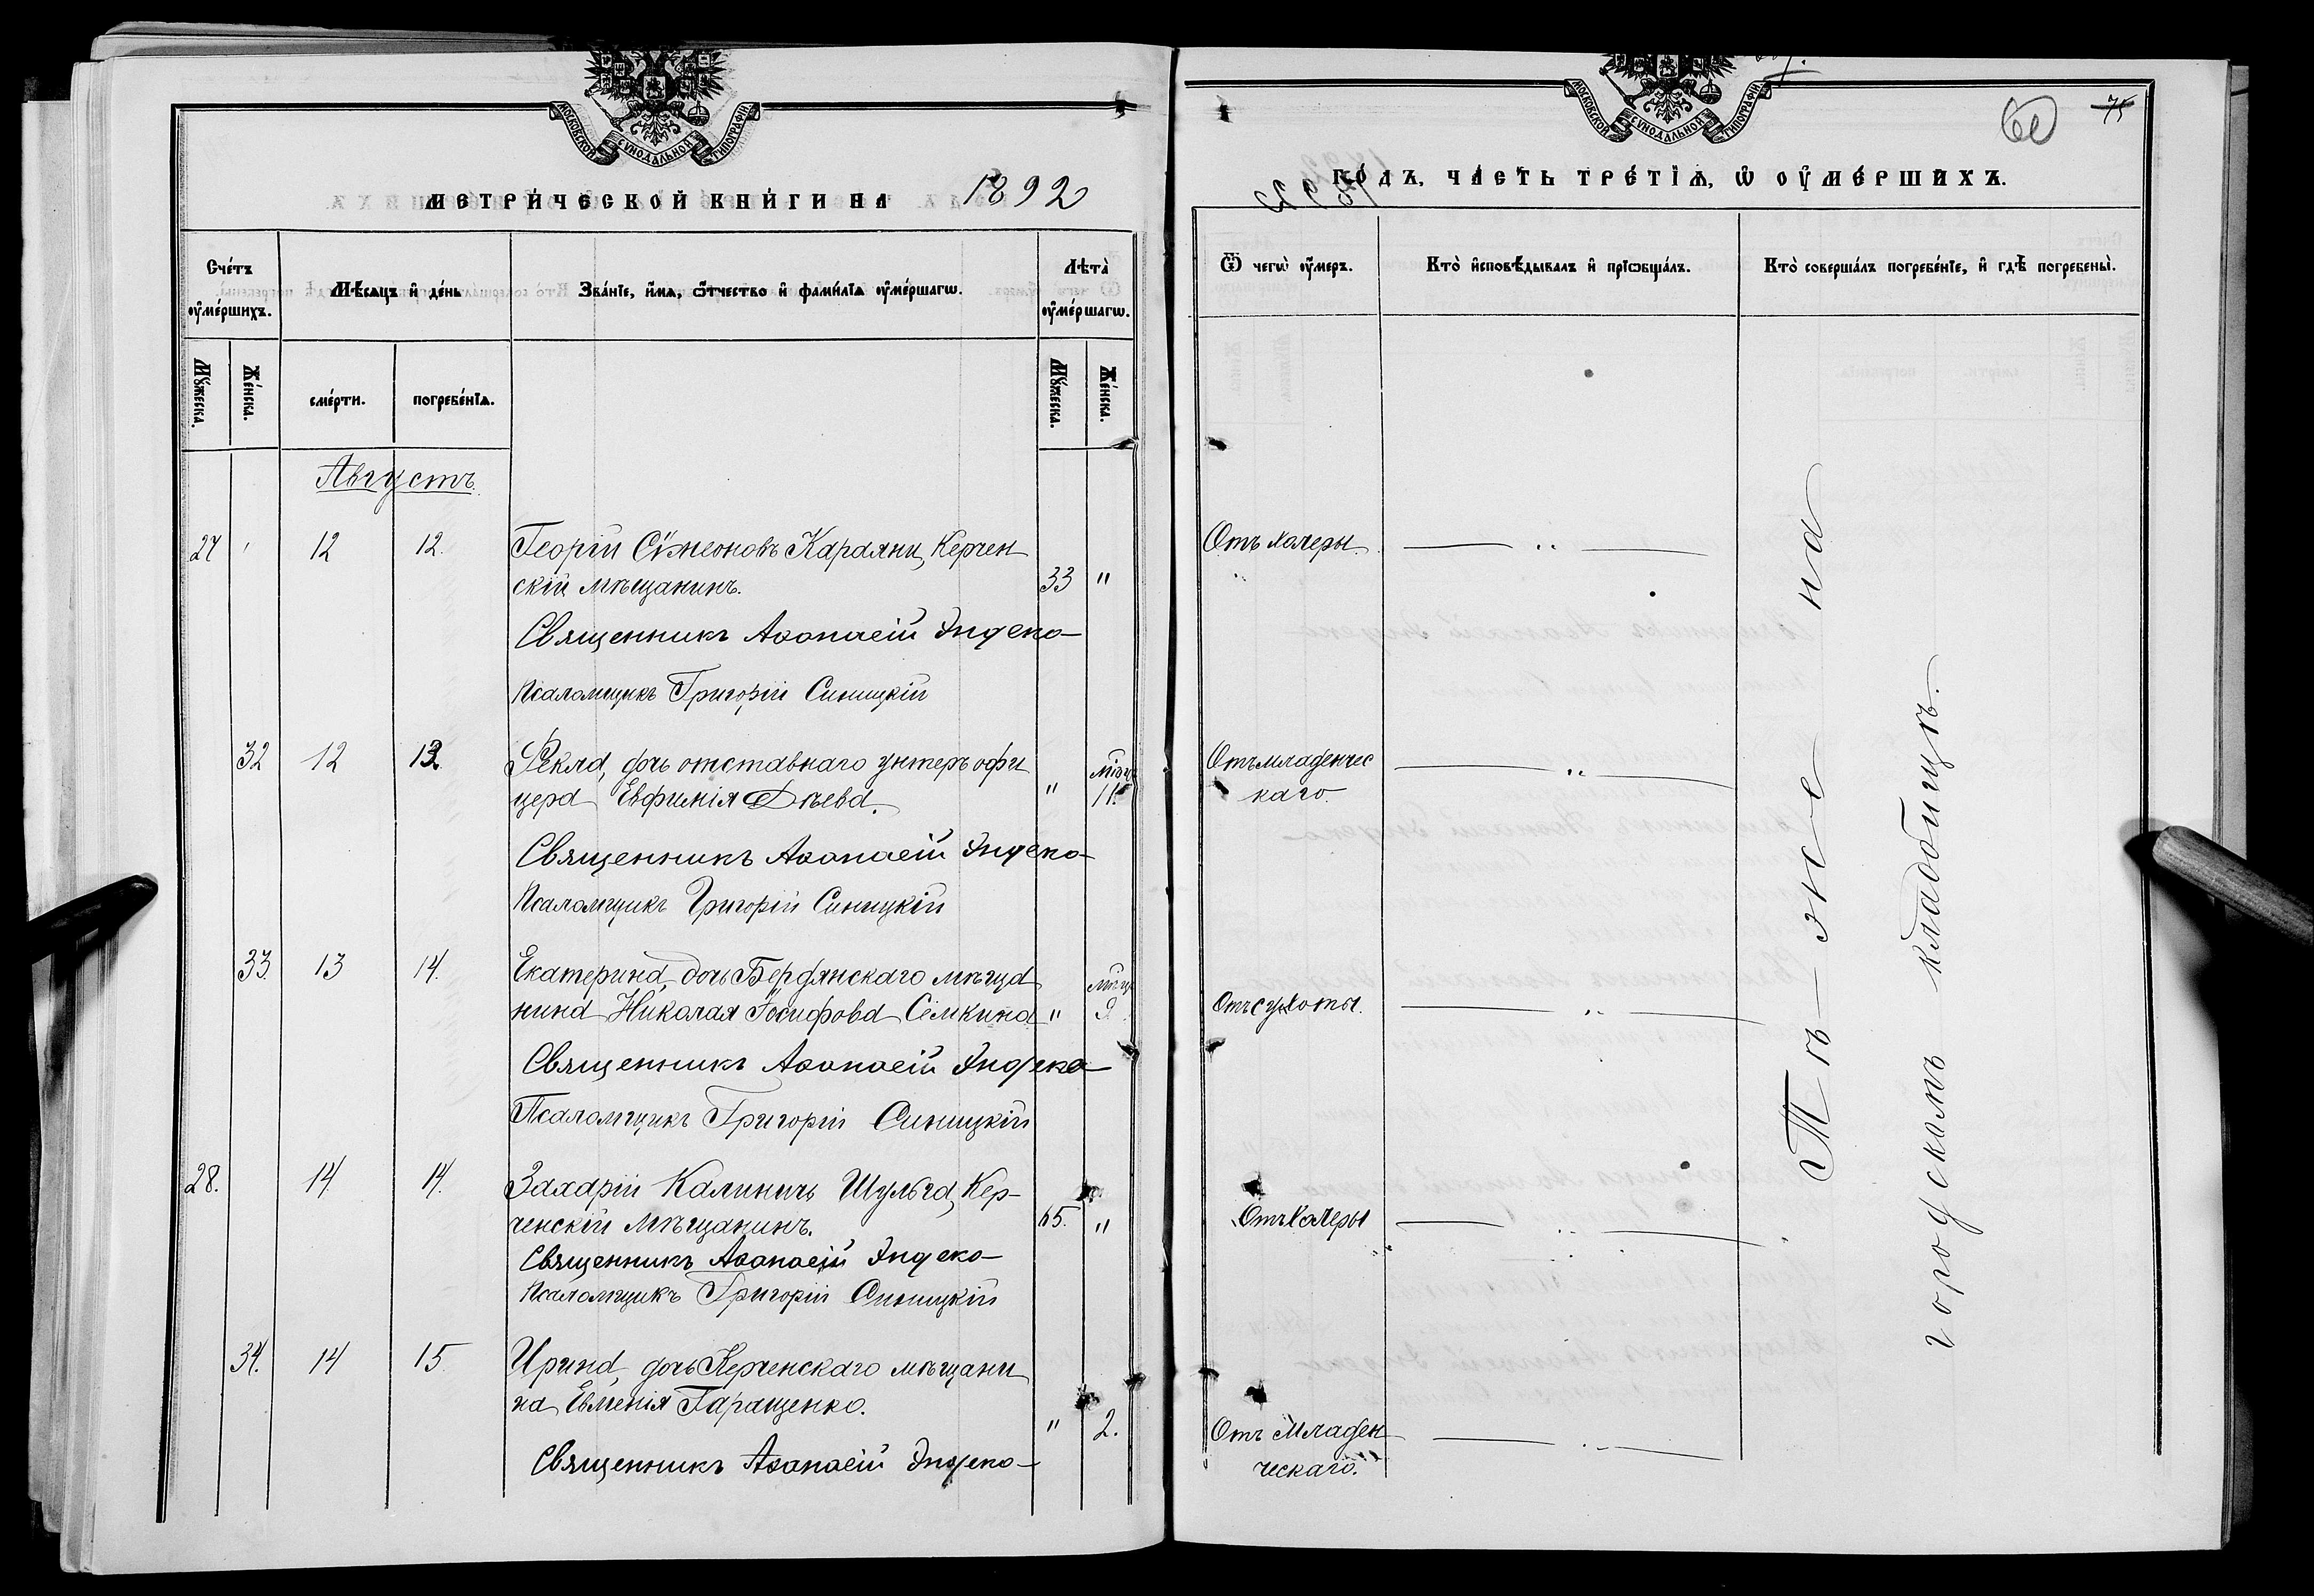 МОСКОВСКОЙ СѴНОДАЛЬНОЙ ТИПОГРАФІИ
МЕТРИ́ЧЕСКОЙ КНИ́ГИ НА 1892
Сче́тъ ᲂу҆ме́ршихъ.
Мѣ́сяцъ и҆ де́нь
Зва́нїе, и҆́мѧ, ѻ҆́тчество и҆ фами́лїѧ ᲂу҆ме́ршагѡ.
Лѣта̀ ᲂу҆ме́ршагѡ.
Мꙋ́жеска.
Же́нска.
сме́рти.
погребе́нїѧ.
Мꙋ́жеска.
Же́нска.
Августъ
27 12 12. Георгій Сѵмеоновъ Караяни, Керчен
скій мѣщанинъ. 33 "
Священникъ Аѳанасій Индеко
Псаломщикъ Григорій Синицкій
32 12 13. Ѳекла, дочь отставнаго унтеръ офи
цера Евфимія Дѣева. " 11.
Священникъ Аѳанасій Индеко
Псаломщикъ Григорій Синицкій
33 13 14. Екатерина, дочь Бердянскаго мѣща
нина Николая Іосифова Сёмкина " 9
Священникъ Аѳанасій Индеко
Псаломщикъ Григорій Синицкій
28. 14 14. Захарій Калиничъ Шульга, Кер-
ченскій мѣщанинъ. 65. "
Священникъ Аѳанасій Индеко
Псаломщикъ Григорій Синицкій
34. 14 15. Ирина, дочь Керченскаго мѣщани
на Евменія Гаращенко. " 2.
Священникъ Аѳанасій Индеко
МОСКОВСКОЙ СѴНОДАЛЬНОЙ ТИПОГРАФІИ
60 75
ГО́ДЪ, ЧА́СТЬ ТРЕ́ТЇѦ, Ѡ҆ ОУ҆МЕ́РШИХЪ.
Ѿ чегѡ̀ ᲂу҆́меръ.
Кто̀ и҆сповѣ́дывалъ и҆ прїѡбща́лъ.
Кто̀ соверша́лъ погребе́нїе, и҆ гдѣ̀ погребены̀.
Отъ холеры.
Отъ младенчес
каго.
Отъ сухоты.
Отъ холеры
Отъ младен
ческаго.
Тѣ-же на
городскомъ кладбищѣ.